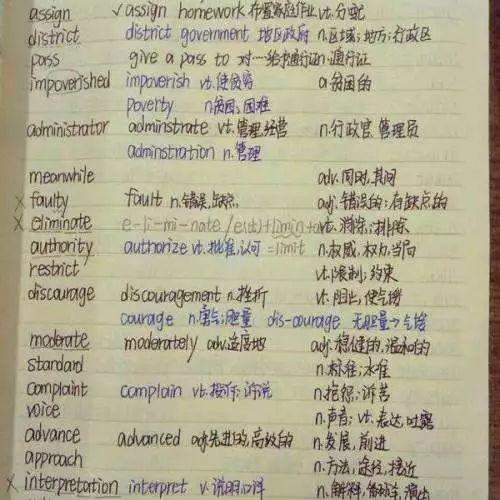 assign ✓assign homework 布置家庭作业 vt.分配
district district government 地区政府 n.区域;地方;行政区
pass give a pass to 对…给予通行证 n.通行证
impoverished impoverish vt.使贫穷 a.贫困的
poverty n.贫困,困难
administrator adminstrate vt.管理,经营 n.行政官,管理员
adminstration n.管理
meanwhile adv.同时,其间
x faulty fault n.错误,缺点 adj.错误的;有缺点的
x eliminate e-li-mi-nate /e(出)+limin +ate vt.消除;排除
authority authorize vt.批准,认可 =limit n.权威,权力,当局
restrict vt.限制;约束
discourage discouragement n.挫折 vt.阻止,使气馁
courage n.勇气;胆量 dis-courage 无胆量→气馁
moderate moderately adv.适度地 adj.稳健的,温和的
standard n.标准;水准
complaint complain vt.投诉;诉说 n.抱怨;诉苦
voice n.声音;vt.表达,吐露
advance advanced adj.先进的,高级的 n.发展,前进
approach n.方法,途径,接近
x interpretation interpret v.说明,口译 n.解释,翻译,演出